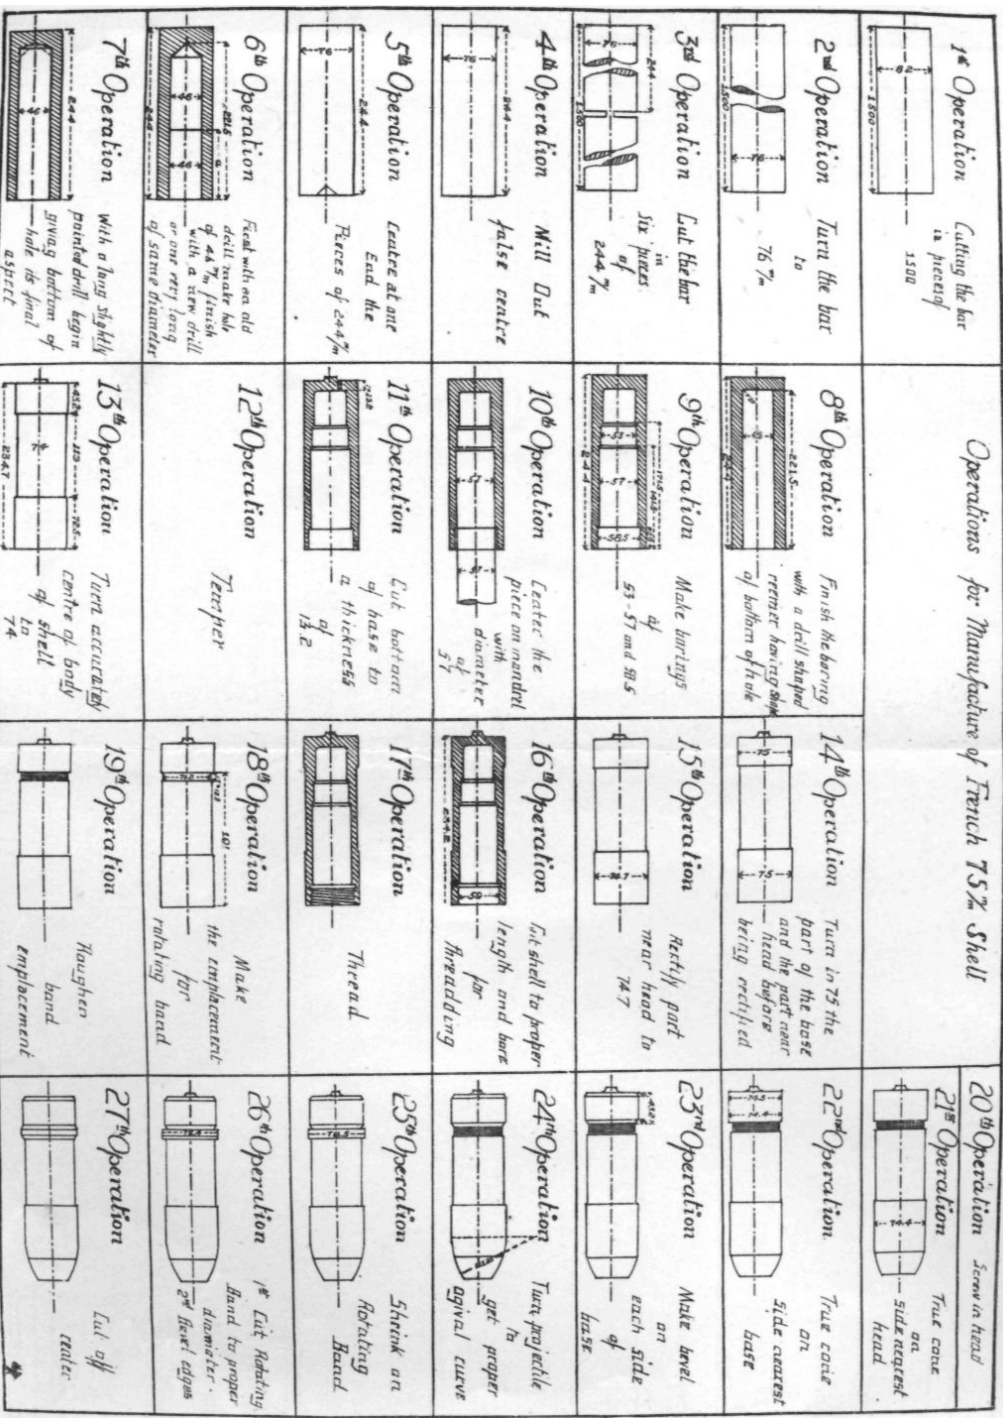 Operations for Manufacture of French 75 m/m Shell
1st Operation
Cutting the bar
in pieces of
1500
82
1500
2nd Operation
Turn the bar
to
76 m/m
76
1500
3rd Operation
Cut the bar
in
Six pieces
of
244 m/m
76
244
1500
4th Operation
Mill Out
false centre
76
244
5th Operation
Centre at one
End the
Pieces of 244 m/m
76
244
6th Operation
First with an old
drill make hole
of 46 m/m finish
with a new drill
or one very long
of same diameter
46
46
221.5
244
7th Operation
With a long slightly
pointed drill begin
giving bottom of
hole its final
aspect
46
244
8th Operation
Finish the boring
with a drill shaped
reemer having shape
of bottom of hole
221.5
244
9th Operation
Make borings
of
53 - 57 and 58.5
53
57
58.5
244
10th Operation
Center the
piece on mandrel
with
diameter
of
57
57
57
11th Operation
Cut bottom
of base to
a thickness
of
13.2
13.2
12th Operation
Temper
13th Operation
Turn accurately
centre of body
of shell
to
74
74
45.2
110
72.5
234.7
14th Operation
Turn in 75 the
part of the base
and the part near
head before
being rectified
75
75
15th Operation
Rectify part
near head to
74.7
74.7
16th Operation
Cut shell to proper
length and bore
for
threadding
59
17th Operation
Thread
18th Operation
Make
the emplacement
for
rotating band
101
19th Operation
Roughen
band
emplacement
20th Operation Screw in head
21st Operation
True cone
on
side nearest
head
74.4
22nd Operation
True cone
on
side nearest
base
74.5
74.4
23rd Operation
Make bevel
on
each side
of
base
24th Operation
Turn projectile
to
get proper
ogival curve
25th Operation
Shrink on
Rotating
Band
26th Operation
1st Cut Rotating
Band to proper
diameter.
2nd Bevel edges
27th Operation
Cut off
center